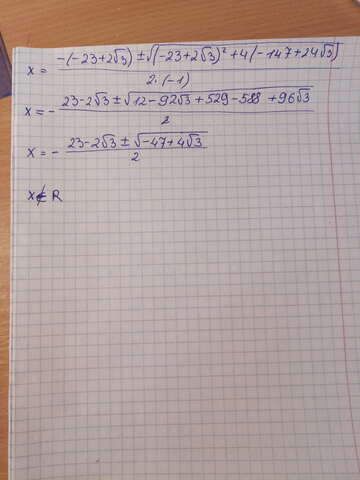 x = \frac{-(-23+2\sqrt{3}) \pm \sqrt{(-23+2\sqrt{3})^2 + 4(-147+24\sqrt{3})}}{2 \cdot (-1)}
x = - \frac{23-2\sqrt{3} \pm \sqrt{12-92\sqrt{3}+529-588+96\sqrt{3}}}{2}
x = - \frac{23-2\sqrt{3} \pm \sqrt{-47+4\sqrt{3}}}{2}
x ∉ R